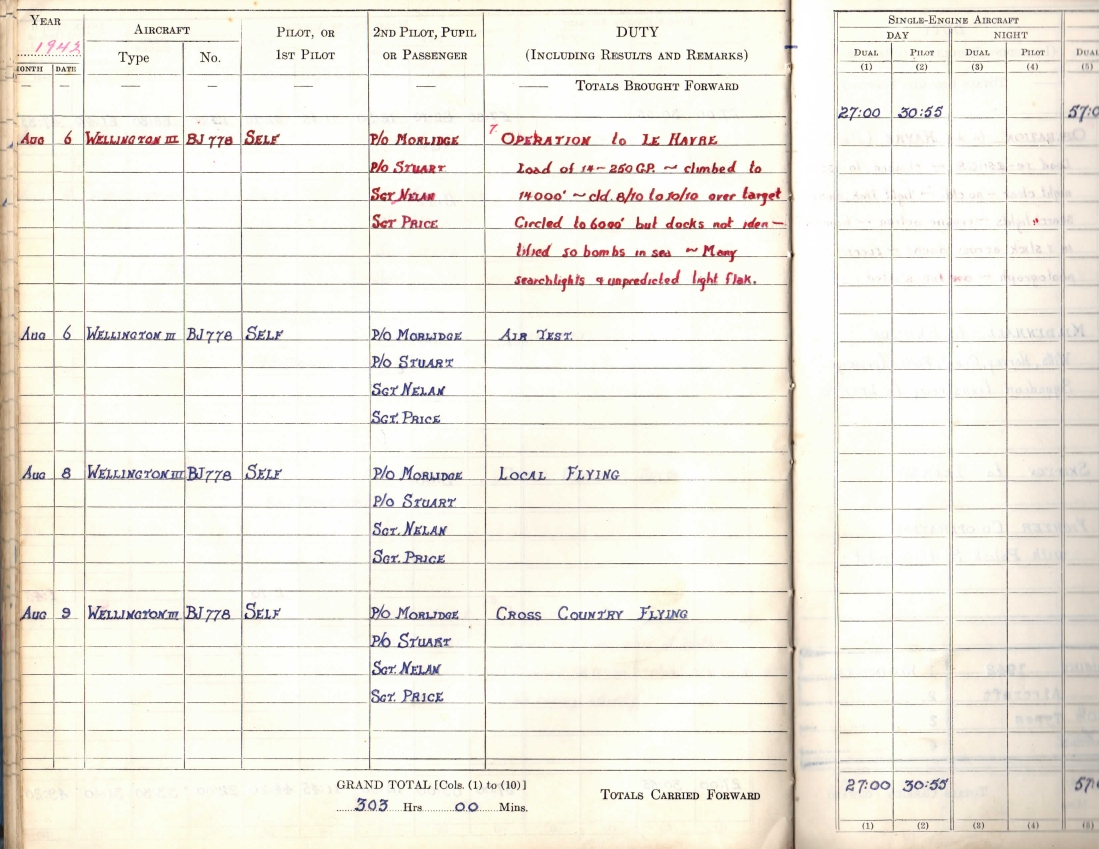 YEAR
1942
AIRCRAFT
PILOT, OR
1ST PILOT
2ND PILOT, PUPIL
OR PASSENGER
DUTY
(INCLUDING RESULTS AND REMARKS)
MONTH DATE Type No.
— — — — — — — TOTALS BROUGHT FORWARD
AUG 6 WELLINGTON III BJ 778 SELF P/O MORLIDGE 7 OPERATION to LE HAVRE
P/O STUART Load of 14-250 G.P. ~ climbed to
SGT NELAN 14000' ~ cld. 8/10 to 10/10 over target
SGT PRICE Circled to 6000' but docks not iden-
tified so bombs in sea ~ Many
searchlights & unpredicted light flak.
AUG 6 WELLINGTON III BJ 778 SELF P/O MORLIDGE AIR TEST.
P/O STUART
SGT NELAN
SGT. PRICE
AUG 8 WELLINGTON III BJ 778 SELF P/O MORLIDGE LOCAL FLYING
P/O STUART
SGT. NELAN
SGT. PRICE
AUG 9 WELLINGTON III BJ 778 SELF P/O MORLIDGE CROSS COUNTRY FLYING
P/O STUART
SGT. NELAN
SGT. PRICE
GRAND TOTAL [Cols. (1) to (10)]
303 Hrs 00 Mins.
TOTALS CARRIED FORWARD
SINGLE-ENGINE AIRCRAFT
DAY NIGHT
DUAL PILOT DUAL PILOT DUAL
(1) (2) (3) (4) (5)
27:00 30:55 57:0
27:00 30:55 57:
(1) (2) (3) (4) (5)